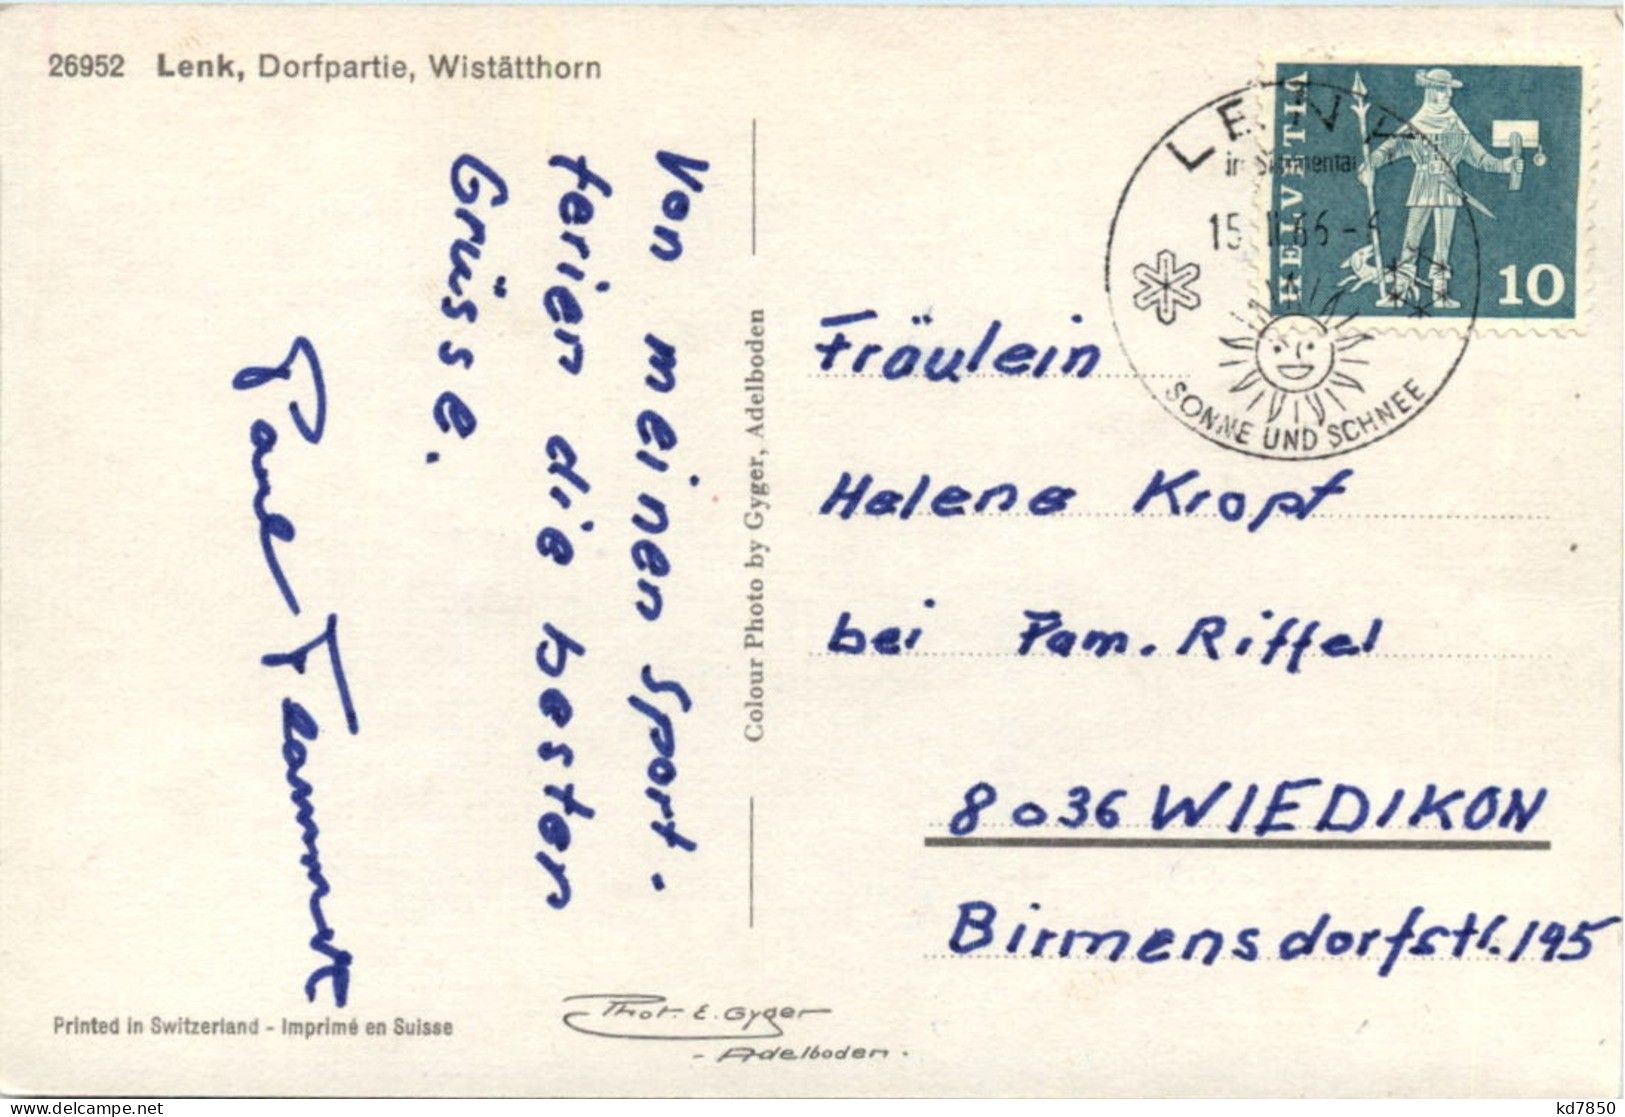 26952 Lenk, Dorfpartie, Wistätthorn
Von meinen Sport.
ferien die besten
Grüsse.
Paul
Colour Photo by Gyger, Adelboden
HELVETIA
10
LENK
im Simmental
15. II. 66 -
SONNE UND SCHNEE
Fräulein
Helene Kropf
bei Fam. Riffel
8036 WIEDIKON
Birmensdorfstr. 195
Printed in Switzerland - Imprimé en Suisse
Phot. E. Gyger
- Adelboden.
kd7850